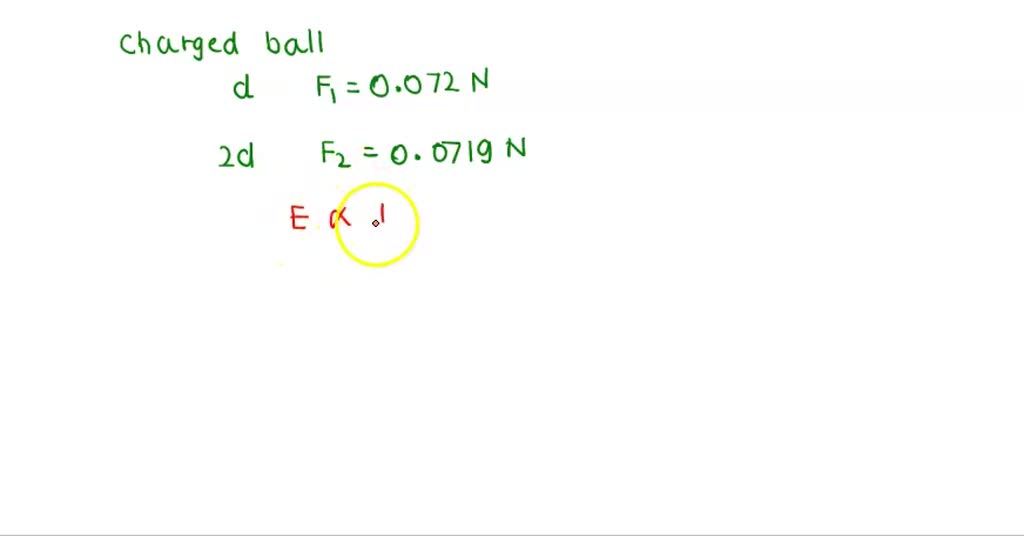 charged ball
d F₁ = 0.072 N
2d F₂ = 0.0719 N
E ∝ 1